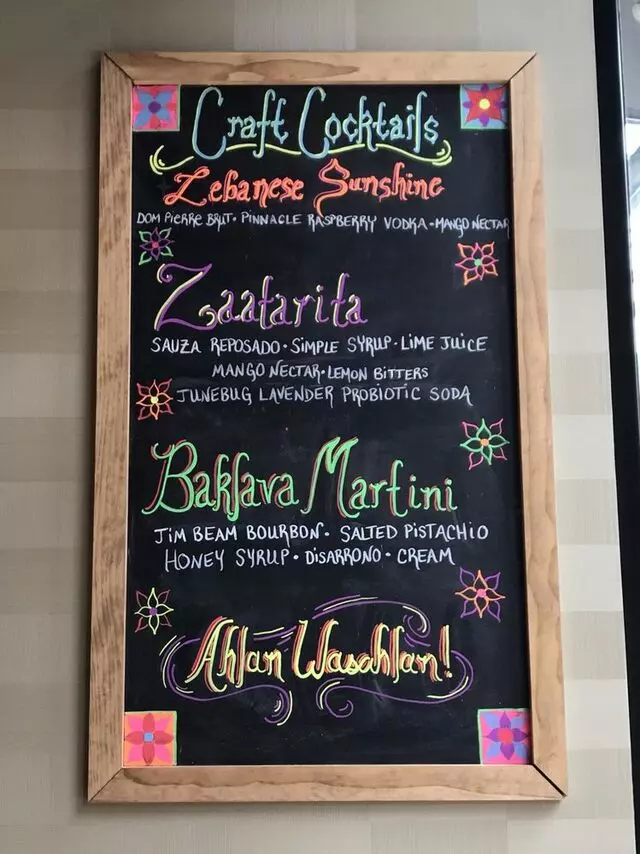 Craft Cocktails
Lebanese Sunshine
DOM PIERRE BRUT · PINNACLE RASPBERRY VODKA · MANGO NECTAR
Zaatarita
SAUZA REPOSADO · SIMPLE SYRUP · LIME JUICE
MANGO NECTAR · LEMON BITTERS
JUNEBUG LAVENDER PROBIOTIC SODA
Baklava Martini
JIM BEAM BOURBON · SALTED PISTACHIO
HONEY SYRUP · DISARRONO · CREAM
Ahlan Wasahlan!